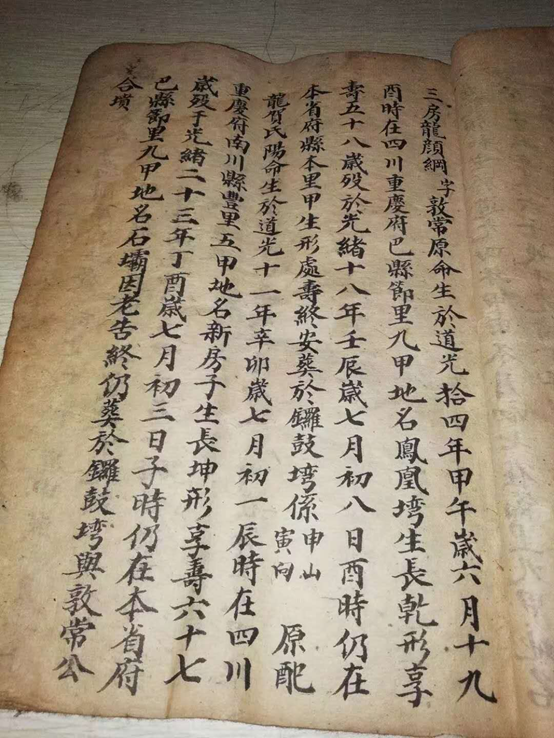 三房龍顔綱字敦常原命生於道光拾四年甲午歲六月十九
酉時在四川重慶府巴縣節里九甲地名鳳凰塆生長乾形享
壽五十八歲殁於光緒十八年壬辰歲七月初八日酉時仍在
本省府縣本里甲生形處壽終安葬於鑼鼓塆係申山寅向 原配
龍賀氏陽命生於道光十一年辛卯歲七月初一辰時在四川
重慶府南川縣豐里五甲地名新房子生長坤形享壽六十七
歲殁于光緒二十三年丁酉歲七月初三日子時仍在本省府
巴縣節里九甲地名石壩因老告終仍葬於鑼鼓塆與敦常公
合墳